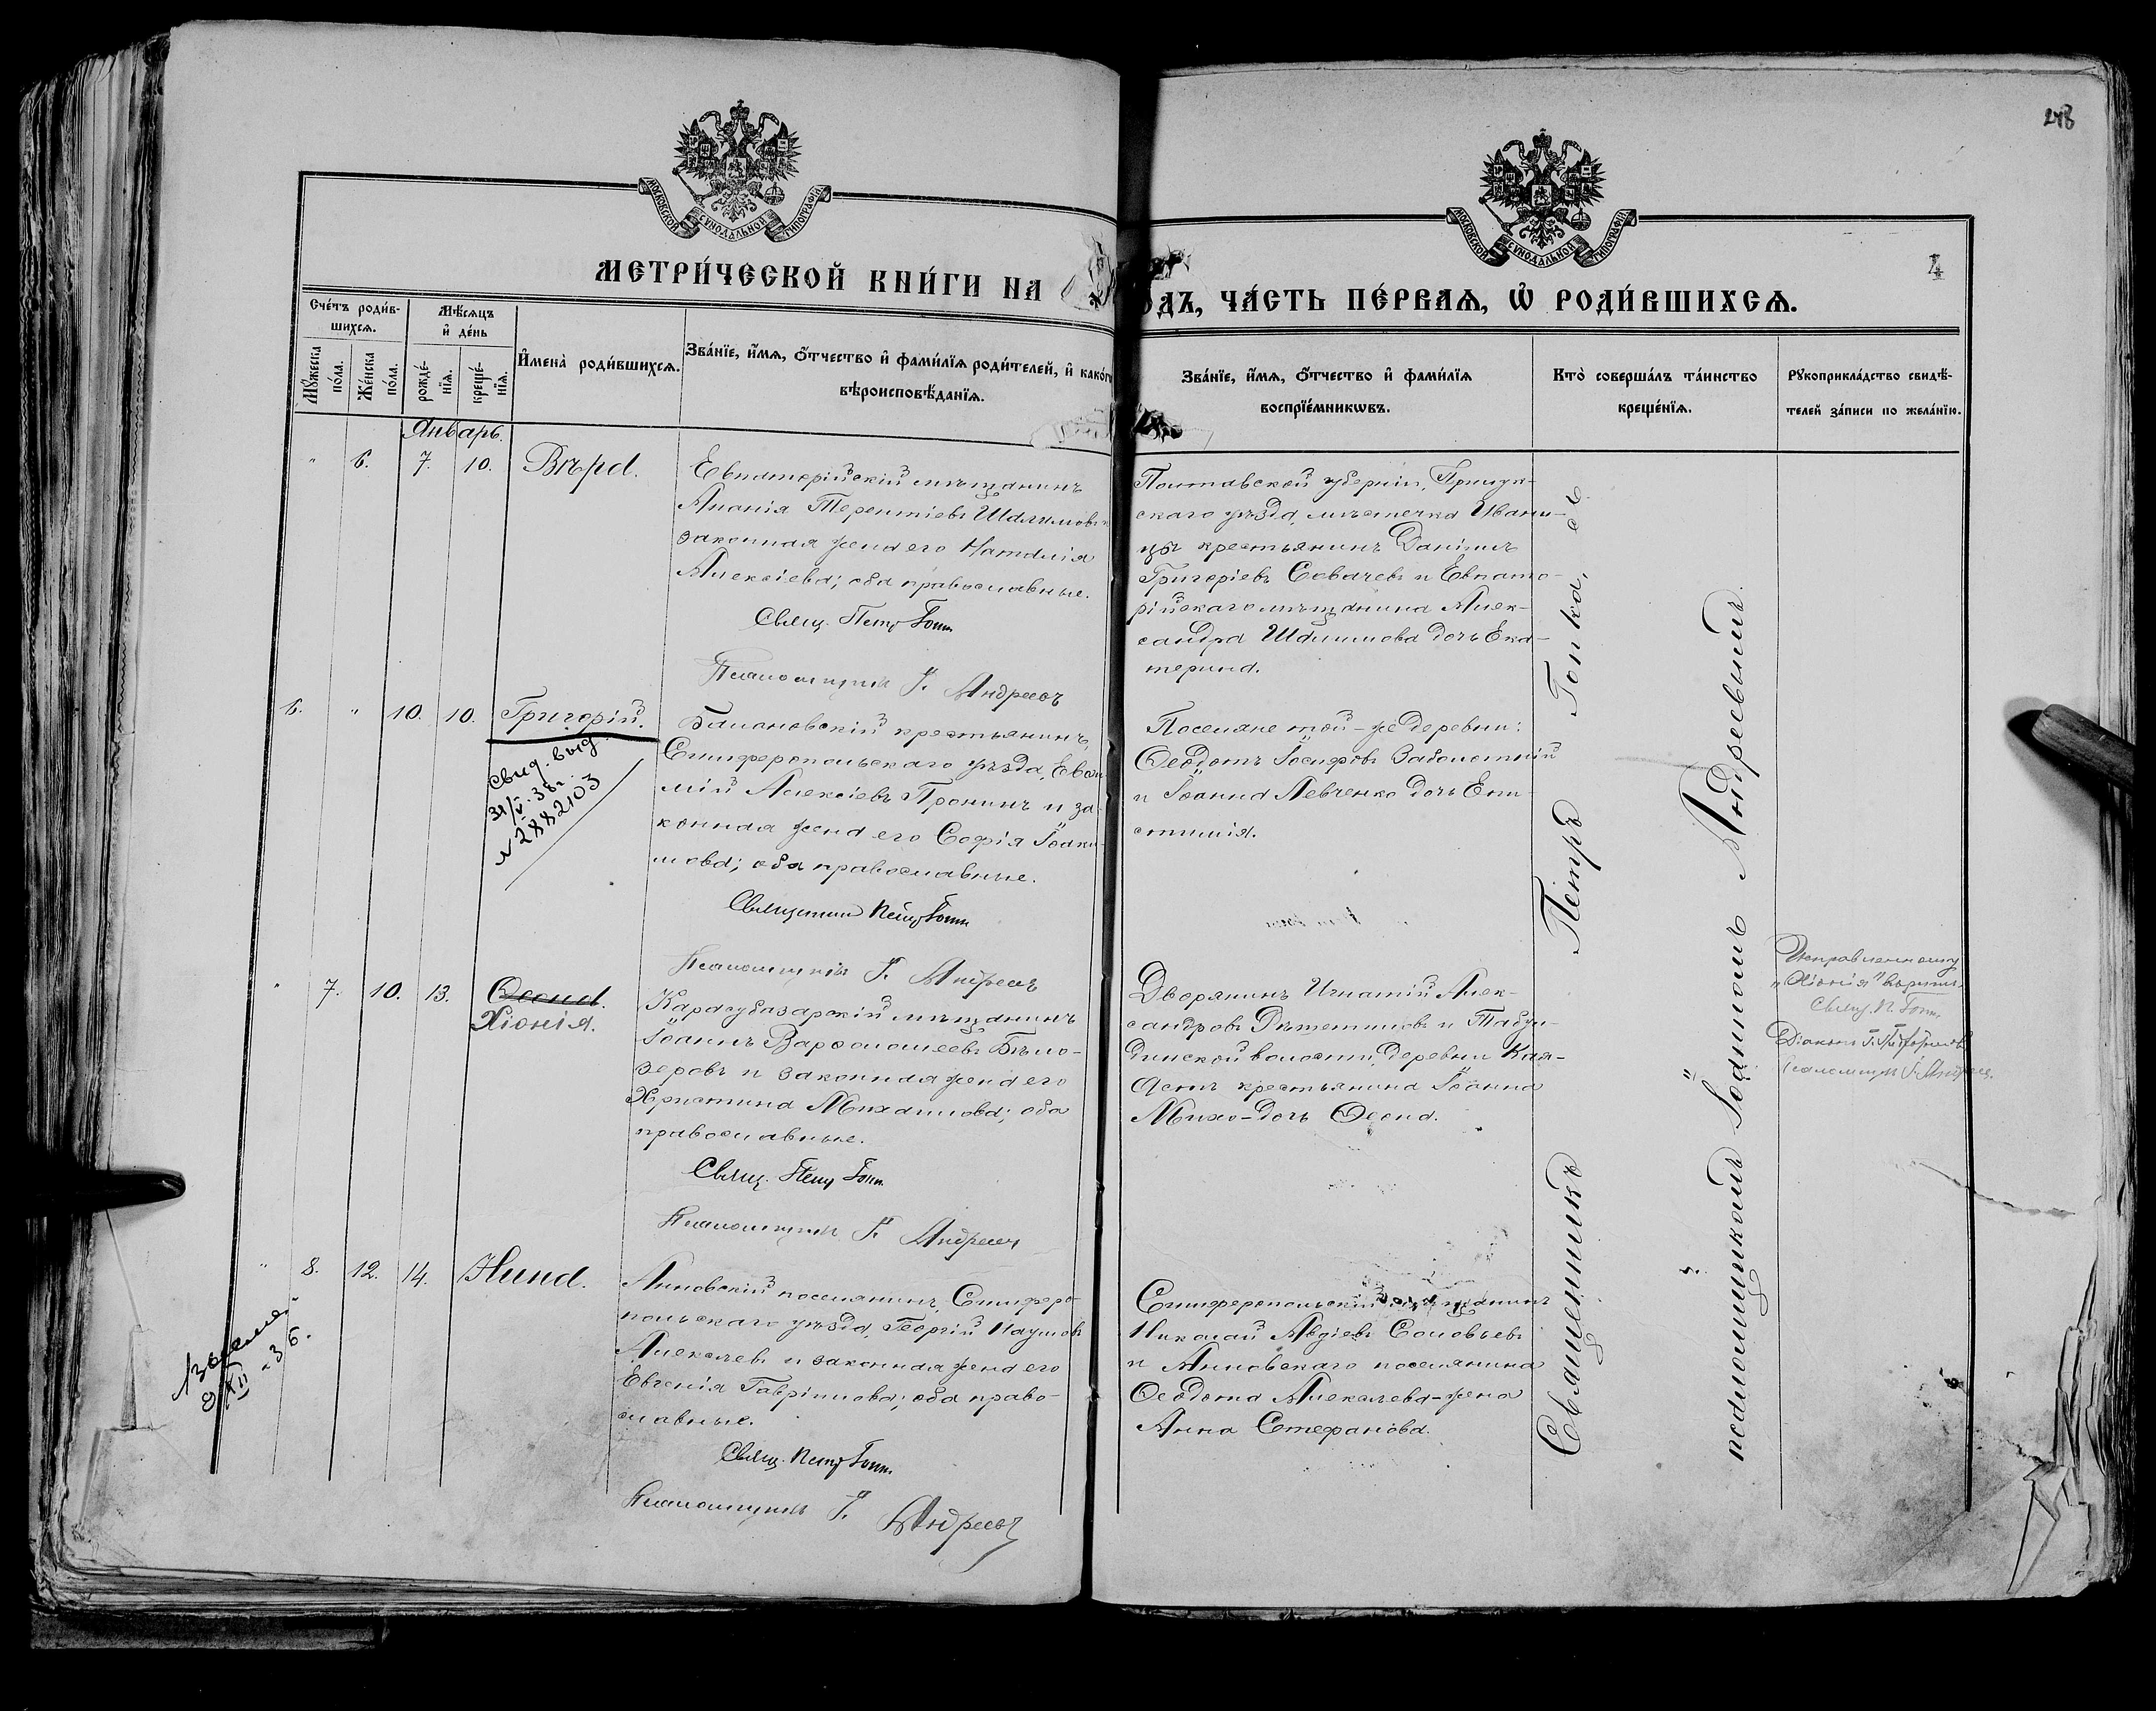 278
4
МОСКОВСКОЙ СѴНОДАЛЬНОЙ ТИПОГРАФІИ
МОСКОВСКОЙ СѴНОДАЛЬНОЙ ТИПОГРАФІИ
МЕТРИ́ЧЕСКОЙ КНИ́ГИ НА
ОДЪ, ЧА́СТЬ ПЕ́РВАЯ, Ѽ РОДИ́ВШИХСЯ.
Сче́тъ роди́в-
шихся.
Мꙋ́жеска
по́ла.
Же́нска
по́ла.
Мѣ́сяцъ
и҆ де́нь
рожде́-
нїя.
креще́-
нїя.
И҆мена̀ роди́вшихся.
Зва́нїе, и҆́мя, ѻ҆́тчество и҆ фами́лїя роди́телей, и҆ како́г
вѣроисповѣ́данїя.
Зва́нїе, и҆́мя, ѻ҆́тчество и҆ фами́лїя
воспрїе́мникѡвъ.
Кто̀ соверша́лъ та́инство
креще́нїя.
Рꙋкоприкла́дство свидѣ́-
телей за́писи по жела́нїю.
Январь.
" 6. 7. 10. Вѣра.
Евпаторійскій мѣщанинъ
Ананія Терентіевъ Шалимовъ и
законная жена его Наталія
Алексіева; оба православные.
Свящ. Петръ Гопк.
Псаломщикъ І. Андреевъ
Полтавской губерніи, Прилук-
скаго уѣзда, мѣстечка Ивани-
цы крестьянинъ Даніилъ
Григоріевъ Савачевъ и Евпато-
рійскаго мѣщанина Алек-
сандра Шалимова дочь Ека-
терина.
6. " 10. 10. Григорій.
свид. выд.
31/V. 38 г.
N 2882103
крестьянинъ,
Симферопольскаго уѣзда, Евѳи-
мій Алексіевъ Пронинъ и за-
конная жена его Софія Іоаки-
мова; оба православные.
Священникъ Петръ Гопк.
Псаломщикъ І. Андреевъ
Поселяне той-же деревни:
Ѳеодотъ Іосифовъ Заболотній
и Іоанна Левченко дочь Епи-
стимія.
" 7. 10. 13. Ѳеона.
Хіонія.
Карасубазарскій мѣщанинъ
Іоаннъ Варѳоломеевъ Бѣло-
зеровъ и законная жена его
Христина Михаилова; оба
православные.
Свящ. Петръ Гопк.
Псаломщикъ І. Андреевъ
Дворянинъ Игнатій Алек-
сандровъ и Табул-
динской волости, деревни
крестьянина Іоанна
дочь Ѳеона.
Исправленному
„Хіонія" вѣрить.
Свящ. П. Гопк.
Діаконъ
Псаломщикъ І. Андреев.
" 8. 12. 14. Нина.
9/XII - 36.
Анновскій поселянинъ, Симферо-
польскаго уѣзда, Георгій Наумовъ
Алексѣевъ и законная жена его
Евгенія Гавріилова; оба право-
славные.
Свящ. Петръ Гопк.
Псаломщикъ І. Андреевъ
Симферопольскій мѣщанинъ
Николай Авдіевъ Соловьевъ
и Анновскаго поселянина
Ѳеодота Алексѣева-жена
Анна Стефанова.
Священникъ Петръ Гопка, съ
псаломщикомъ Іоанномъ Андреевымъ.